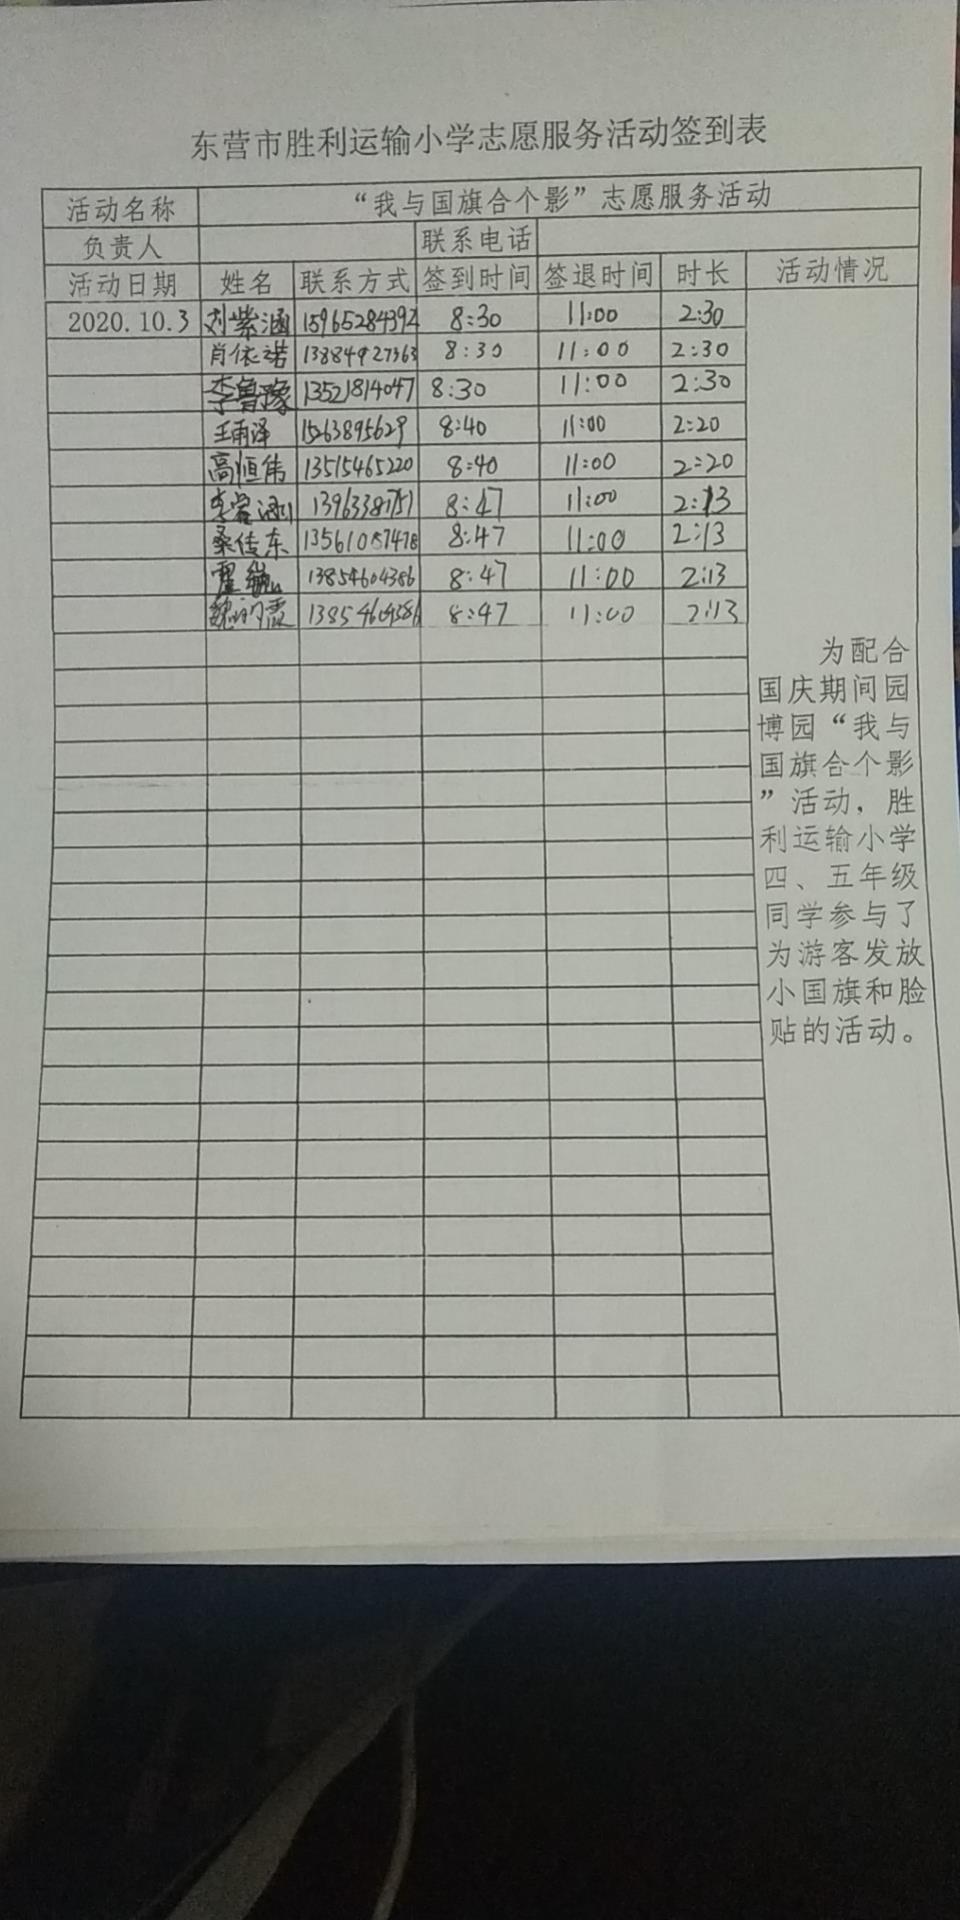 东营市胜利运输小学志愿服务活动签到表
活动名称 “我与国旗合个影”志愿服务活动
负责人 联系电话
活动日期 姓名 联系方式 签到时间 签退时间 时长 活动情况
2020.10.3 刘紫涵 15965284392 8:30 11:00 2:30
肖依诺 13884927363 8:30 11:00 2:30
李鲁豫 13521814047 8:30 11:00 2:30
王雨泽 15263895629 8:40 11:00 2:20
高恒伟 13515465220 8:40 11:00 2:20
8:47 11:00 2:13
桑传东 13561087478 8:47 11:00 2:13
13854604386 8:47 11:00 2:13
8:47 11:00 2:13
为配合
国庆期间园
博园“我与
国旗合个影
”活动，胜
利运输小学
四、五年级
同学参与了
为游客发放
小国旗和脸
贴的活动。